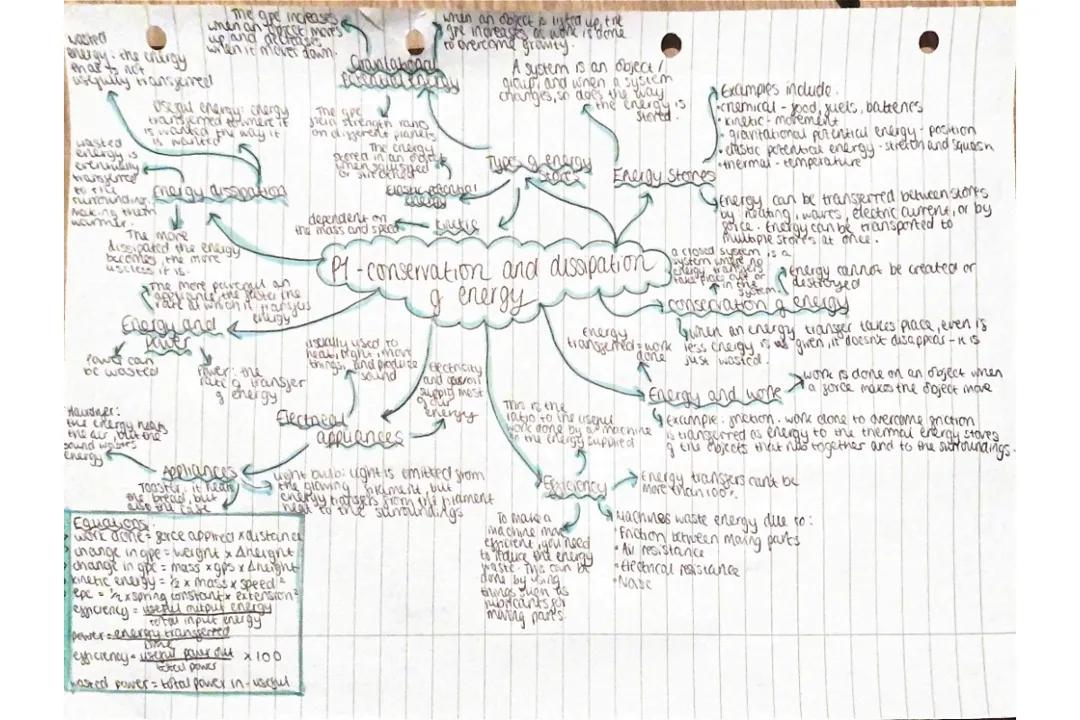 The gpe increases
when an object moves
up and decreases
when it moves down.
when an object is lifted up, the
gpe increases as work is done
to overcome gravity.
wasted
energy: the energy
that is not
usefully transferred
Gravitational
potential energy
A system is an object/
group, and when a system
changes, so does the way
the energy is
stored.
Examples include:
• chemical - food, fuels, batteries
• kinetic - movement
• gravitational potential energy - position
• elastic potential energy - stretch and squash
• thermal - temperature
Useful energy: energy
transferred to where it
is wanted the way it
is wanted
The gpe
field strength varies
on different planets
The energy
stored in an object
when squashed
or stretched
Types of energy
stores
Energy Stores
wasted
energy is
eventually
transferred
to the
surrounding,
making them
warmer.
Energy dissipation
Elastic potential
energy
Energy can be transferred between stores
by heating, waves, electric current, or by
force. Energy can be transported to
multiple stores at once.
dependent on
the mass and speed
kinetic
The more
dissipated the energy
becomes, the more
useless it is.
P1 - conservation and dissipation
of energy
a closed system is a
system where no
energy transfers
take place out or
in the
system
energy cannot be created or
destroyed
conservation of energy
The more powerful an
appliance, the faster the
rate at which it transfers
energy
Energy and
Power
Power can
be wasted
Power: the
rate of transfer
of energy
usually used to
heat, light, move
things, and produce
sound
Electricity
and
supply most
of our
energy
Energy
transferred = work
done
when an energy transfer takes place, even is
less energy is given, it doesn't disappear - it is
just wasted.
Energy and work
work is done on an object when
a force makes the object move
Example: friction. work done to overcome friction
is transferred as energy to the thermal energy stores
of the objects that rub together and to the surroundings.
Hairdrier:
the energy heats
the air, but the
sound wastes
energy
Electrical
appliances
This is the
ratio to the useful
work done by a machine
in the energy supplied
Appliances
Toaster: it heats
the bread, but
also the case
Light bulb: light is emitted from
the glowing filament, but
energy transfers from the filament
heat to the surroundings
Efficiency
Energy transfers can't be
more than 100%.
To make a
machine more
efficient, you need
to reduce the energy
waste. This can be
done by using
things such as
lubricants for
moving parts
Machines waste energy due to:
• Friction between moving parts
• Air resistance
• Electrical resistance
• Noise
Equations:
work done = force applied x distance
change in gpe = weight x Δheight
change in gpe = mass x gfs x Δheight
kinetic energy = ½ x mass x speed²
epe = ½ x spring constant x extension²
efficiency = useful output energy
total input energy
power = energy transferred
time
efficiency = useful power out x 100
total power
wasted power = total power in - useful